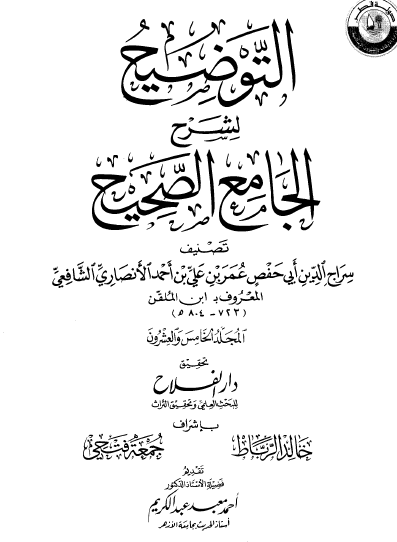 التَّوضِيحُ
لِشَرْحِ
الجَامِعِ الصَّحِيحِ
تَصْنِيف
سِرَاجِ الدِّينِ أَبِي حَفْصٍ عُمَرَ بْنِ عَلِيِّ بْنِ أَحْمَدَ الأَنْصَارِيِّ الشَّافِعِيِّ
المَعْرُوف بِـ ابن المُلَقِّن
(٧٢٣ - ٨٠٤ هـ)
المجَلّدُ الخَامِسُ وَالعِشْرُون
تحقيق
دار الفلاح
للبحث العلمي وتحقيق التراث
بإشراف
خالد الرباط جمعة فتحي
تقديم
فضيلة الأستاذ الدكتور
أحمد معبد عبد الكريم
أستاذ الحديث بجامعة الأزهر